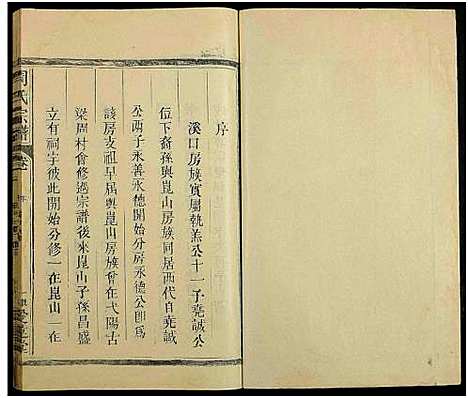 序
溪口房族實屬執羔公十一子堯誠公
位下裔孫與崑山房族同居西代自堯誠
公両子永善永德開始分房永德公卽為
該房支祖早屆與崑山房族會在弋陽古
梁周村會修過宗譜後來崑山子孫昌盛
立有祠宇彼此開始分修一在崑山一在
周氏宗譜
卷一
序